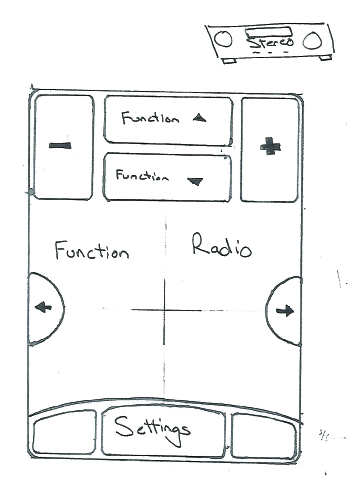 Stereo
Function ▲
Function ▼
Function Radio
Settings